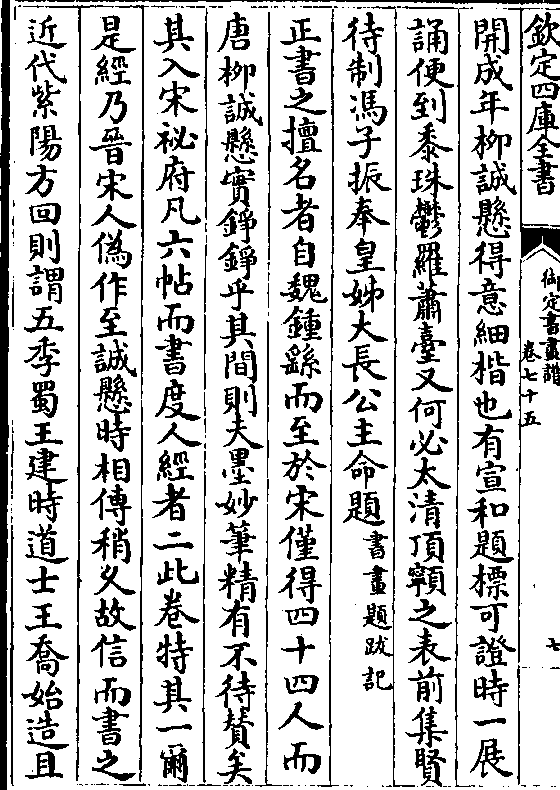 欽定四庫全書
御定書畫譜
卷七十五
七
開成年柳誠懸得意細楷也有宣和題標可證時一展
誦便到黍珠鬱羅蕭臺又何必太清頂顊之表前集賢
待制馮子振奉皇姊大長公主命題書畫題跋記
正書之擅名者自魏鍾繇而至於宋僅得四十四人而
唐柳誠懸實錚錚乎其間則夫墨妙筆精有不待賛矣
其入宋祕府凡六帖而書度人經者二此卷特其一爾
是經乃晉宋人偽作至誠懸時相傳稍乂故信而書之
近代紫陽方回則謂五季蜀王建時道士王喬始造且